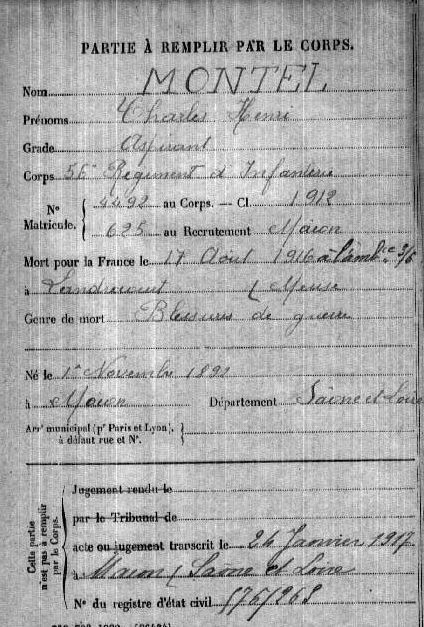 PARTIE À REMPLIR PAR LE CORPS.
Nom MONTEL
Prénoms Charles Henri
Grade Aspirant
Corps 56e Régiment d'Infanterie
N° Matricule. { 4492 au Corps. — Cl. 1912
625 au Recrutement Mâcon
Mort pour la France le 17 Août 1916 à l'amb.ce 3/6
à Landrecourt (Meuse
Genre de mort Blessures de guerre
Né le 1er Novembre 1892
à Mâcon Département Saône et Loire
Arrt municipal (pr Paris et Lyon), à défaut rue et N°. }
Cette partie n'est pas à remplir par le Corps.
Jugement rendu le
par le Tribunal de
acte ou jugement transcrit le 24 Janvier 1917
à Macon (Saone et Loire
N° du registre d'état civil 176/268